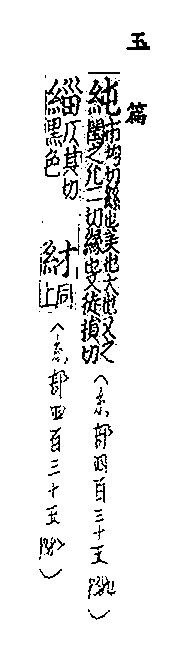 玉篇
純市均切絲也美也大也又之閏之允二切緣也又徒損切（糸部四百三十五）
緇仄其切黑色 紂同上（糸部四百三十五）